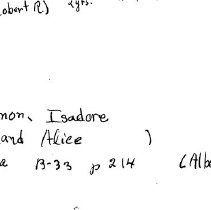 obert R) 2yrs.
mon, Isadore
and (Alice )
a B-33 p 214 (Alb